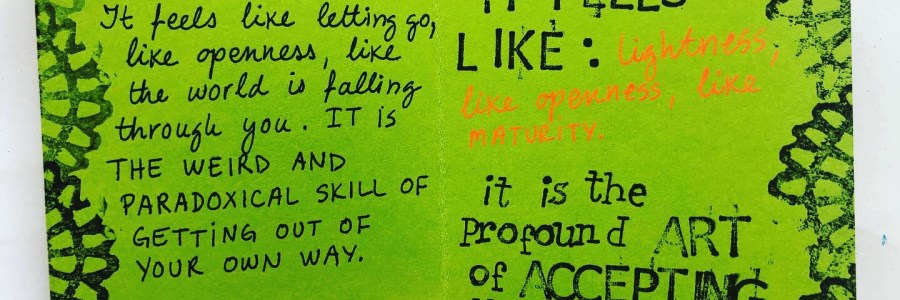 It feels like letting go,
like openness, like
the world is falling
through you. IT IS
THE WEIRD AND
PARADOXICAL SKILL OF
GETTING OUT OF
YOUR OWN WAY.
IT FEELS
LIKE: lightness,
like openness, like
MATURITY.
it is the
Profound ART
of ACCEPTING